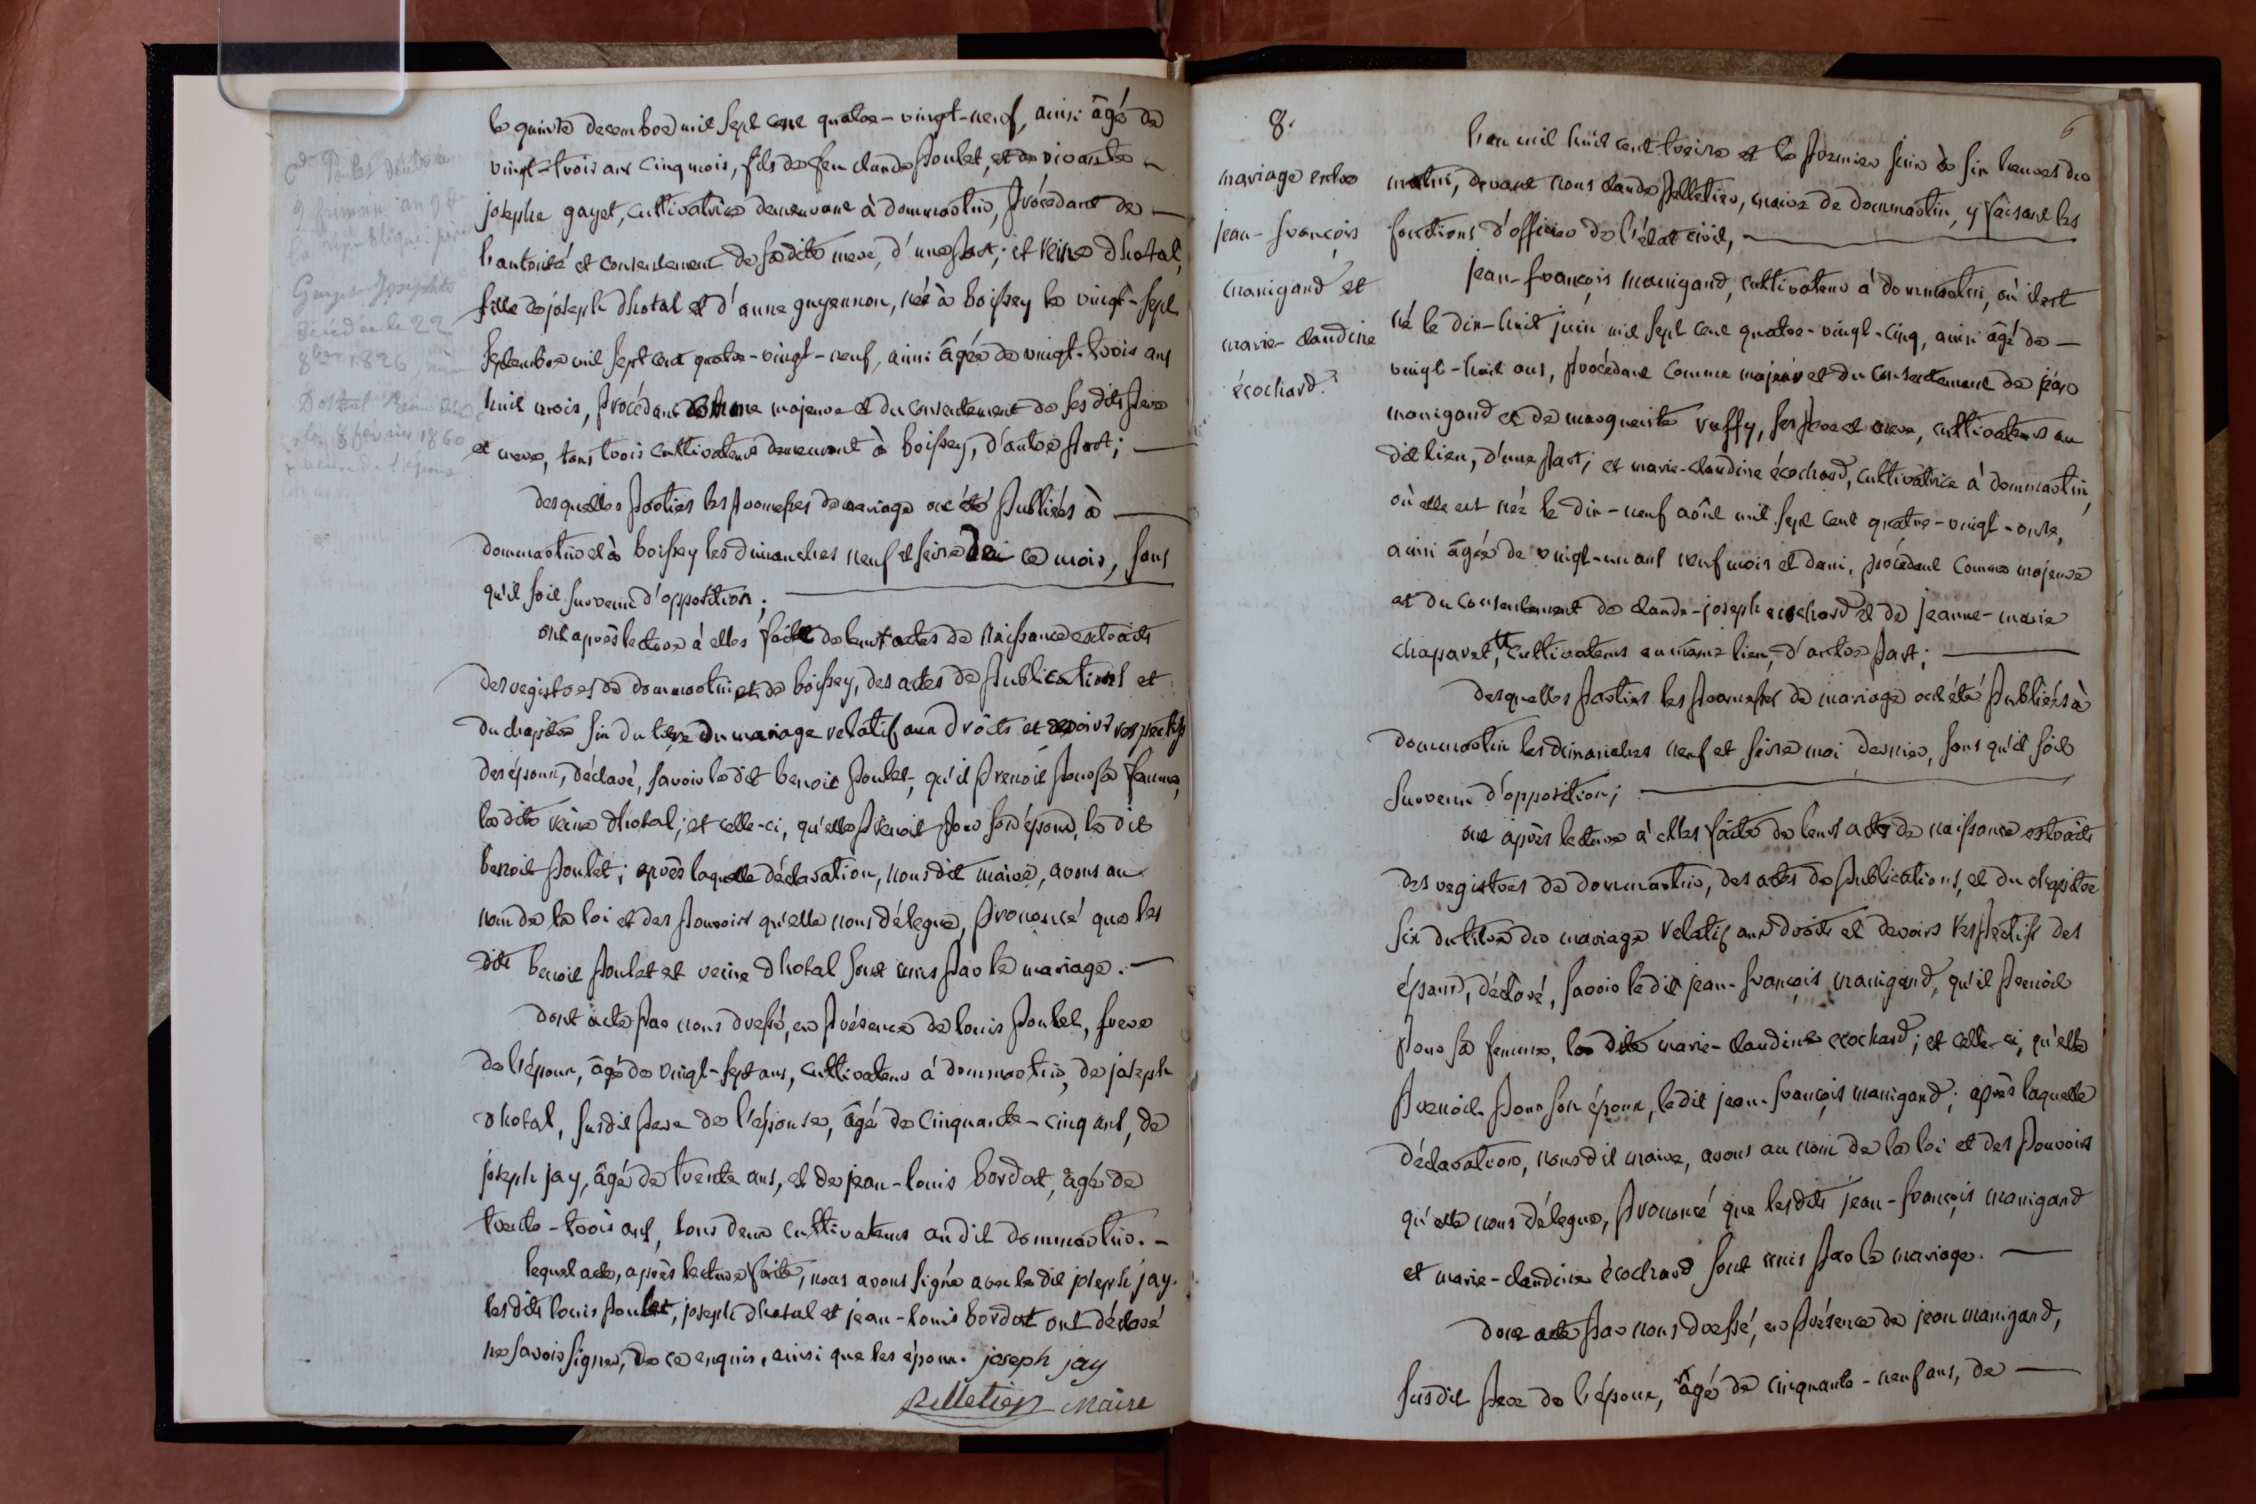 le quinze decembre mil sept cent quatre-vingt-neuf, ainsi âgé de
vingt-trois ans cinq mois, fils de feu claude poulet, et de vivante
josephe gayet, cultivatrice demeurant à dommartin, procédant de
l'autorité et consentement de sadite mere, d'une part; et reine dhotal,
fille de joseph dhotal et d'anne guyennon, née à boissey le vingt-sept
septembre mil sept cent quatre-vingt-neuf, ainsi âgée de vingt-trois ans
huit mois, procédant comme majeure et du consentement de ses dits pere
et mere, tous trois cultivateurs demeurant à boissey, d'autre part;
desquelles parties les promesses de mariage ont été publiées à
dommartin et à boissey les dimanches neuf et seize de ce mois, sans
qu'il soit survenu d'opposition;
ont après lecture à elles faite de leurs actes de naissance extraits
des registres de dommartin et de boissey, des actes de publications et
du chapitre six du titre du mariage relatif aux droits et devoirs respectifs
des époux, déclaré, savoir ledit benoit poulet, qu'il prenoit pour sa femme,
ladite reine dhotal; et celle-ci, qu'elle prenoit pour son époux, le dit
benoit poulet; après laquelle déclaration, nous dit maire, avons au
nom de la loi et des pouvoirs qu'elle nous délegue, prononcé que les
dits benoit poulet et reine dhotal sont unis par le mariage.
dont acte par nous dressé, en présence de louis poulet, frere
de l'époux, âgé de vingt-sept ans, cultivateur à dommartin, de joseph
dhotal, susdit pere de l'épouse, âgé de cinquante-cinq ans, de
joseph jay, âgé de trente ans, et de jean-louis bordat, âgé de
trente-trois ans, tous deux cultivateurs au dit dommartin.
lequel acte, après lecture faite, nous avons signé avec le dit joseph jay.
les dits louis poulet, joseph dhotal et jean-louis bordat ont déclaré
ne savoir signer, de ce enquis, ainsi que les époux. joseph jay
pelletier maire
Gayet Josephte
décédée le 22
8bre 1826
8 fevrier 1860
8.
mariage entre
jean-françois
manigand et
marie-claudine
écochard.
6
l'an mil huit cent treize et le premier juin à six heures du
matin, devant nous claude pelletier, maire de dommartin, y faisant les
fonctions d'officier de l'état civil,
jean-françois manigand, cultivateur à dommartin, où il est
né le dix-huit juin mil sept cent quatre-vingt-cinq, ainsi âgé de
vingt-huit ans, procédant comme majeur et du consentement de jean
manigand et de marguerite ruffy, ses pere et mere, cultivateurs au
dit lieu, d'une part; et marie-claudine écochard, cultivatrice à dommartin,
où elle est née le dix-neuf août mil sept cent quatre-vingt-onze,
ainsi âgée de vingt-un ans neuf mois et demi, procédant comme majeure
et du consentement de claude-joseph ecochard et de jeanne-marie
chaparet, cultivateurs au même lieu, d'autre part;
desquelles parties les promesses de mariage ont été publiées à
dommartin les dimanches neuf et seize mai dernier, sans qu'il soit
survenu d'opposition;
ont après lecture à elles faite de leurs actes de naissance extraits
des registres de dommartin, des actes de publications, et du chapitre
six du titre du mariage relatif aux droits et devoirs respectifs des
époux, déclaré, savoir le dit jean-françois manigand, qu'il prenoit
pour sa femme, la dite marie-claudine ecochard; et celle-ci, qu'elle
prenoit pour son époux, ledit jean-françois manigand; après laquelle
déclaration, nous dit maire, avons au nom de la loi et des pouvoirs
qu'elle nous délegue, prononcé que lesdits jean-françois manigand
et marie-claudine écochard sont unis par le mariage.
dont acte par nous dressé, en présence de jean manigand,
susdit pere de l'époux, âgé de cinquante-neuf ans, de